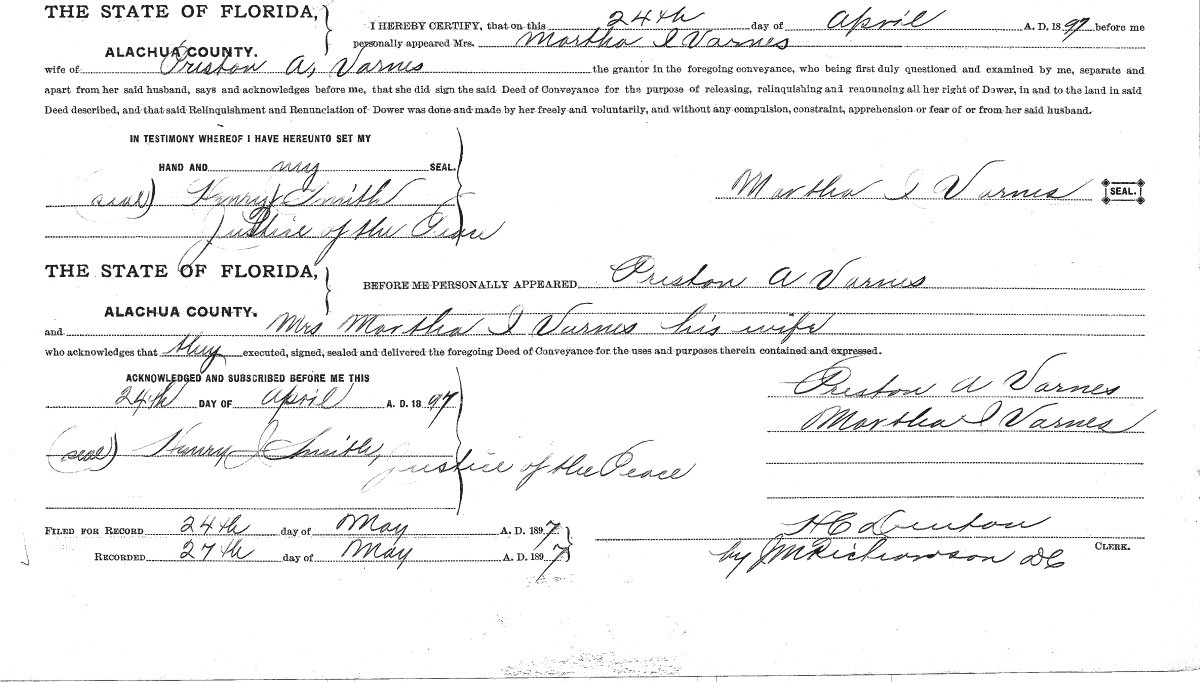 THE STATE OF FLORIDA,
ALACHUA COUNTY.
I HEREBY CERTIFY, that on this 24th day of April A. D. 1897 before me
personally appeared Mrs. Martha I Varnes
wife of Preston A, Varnes the grantor in the foregoing conveyance, who being first duly questioned and examined by me, separate and
apart from her said husband, says and acknowledges before me, that she did sign the said Deed of Conveyance for the purpose of releasing, relinquishing and renouncing all her right of Dower, in and to the land in said
Deed described, and that said Relinquishment and Renunciation of Dower was done and made by her freely and voluntarily, and without any compulsion, constraint, apprehension or fear of or from her said husband.
IN TESTIMONY WHEREOF I HAVE HEREUNTO SET MY
HAND AND my SEAL.
(seal) Henry J Smith
Justice of the Peace
Martha I Varnes SEAL.
THE STATE OF FLORIDA,
ALACHUA COUNTY.
BEFORE ME PERSONALLY APPEARED Preston A Varnes
and Mrs Martha I Varnes his wife
who acknowledges that they executed, signed, sealed and delivered the foregoing Deed of Conveyance for the uses and purposes therein contained and expressed.
ACKNOWLEDGED AND SUBSCRIBED BEFORE ME THIS
24th DAY OF April A. D. 1897
(seal) Henry J Smith, Justice of the Peace
Preston A Varnes
Martha I Varnes
FILED FOR RECORD 24th day of May A. D. 1897
RECORDED 27th day of May A. D. 1897
H C Denton
CLERK.
by J M Richardson DC